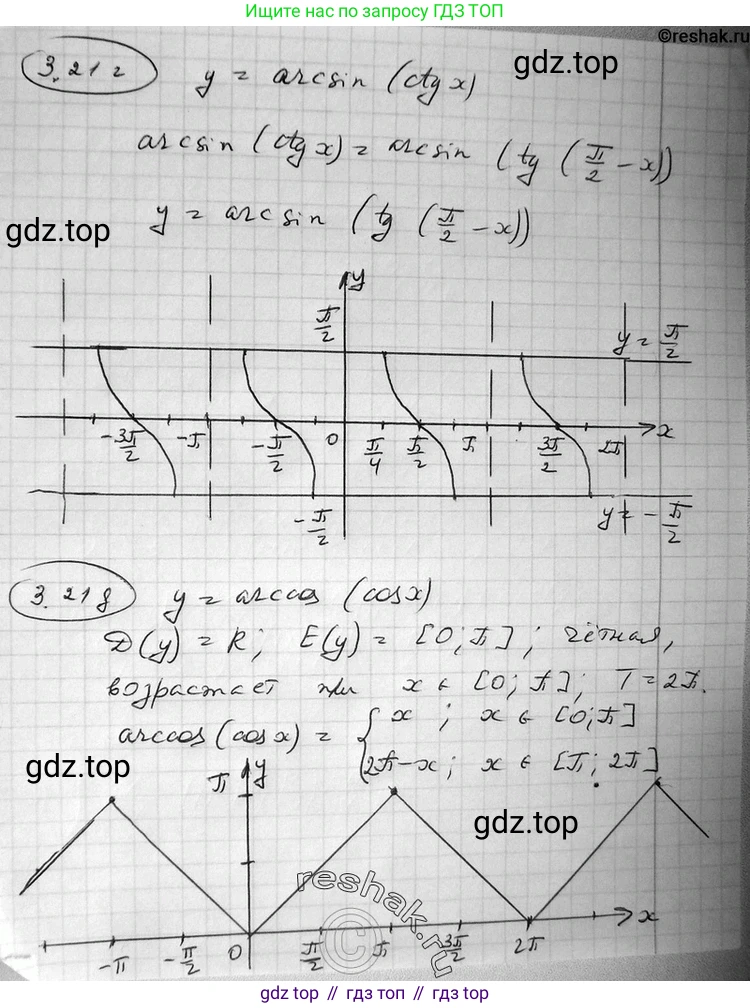 Ищите нас по запросу ГДЗ ТОП
©reshak.ru
3.21 г y = arcsin (ctg x)
gdz.top
arcsin (ctg x) = arcsin (tg (π/2 - x))
y = arcsin (tg (π/2 - x))
gdz.top
y
π/2
y = π/2
-3π/2 -π -π/2 0 π/4 π/2 π 3π/2 2π x
-π/2
y = -π/2
3.21 д y = arccos (cos x)
D(y) = R; E(y) = [0; π]; чётная,
возрастает при x ∈ [0; π]; T = 2π.
arccos (cos x) = { x ; x ∈ [0; π]
2π - x; x ∈ [π; 2π]
gdz.top
π y
gdz.top
reshak.ru
©
-π -π/2 0 π/2 π 3π/2 2π x
gdz.top // гдз топ // гдз.top